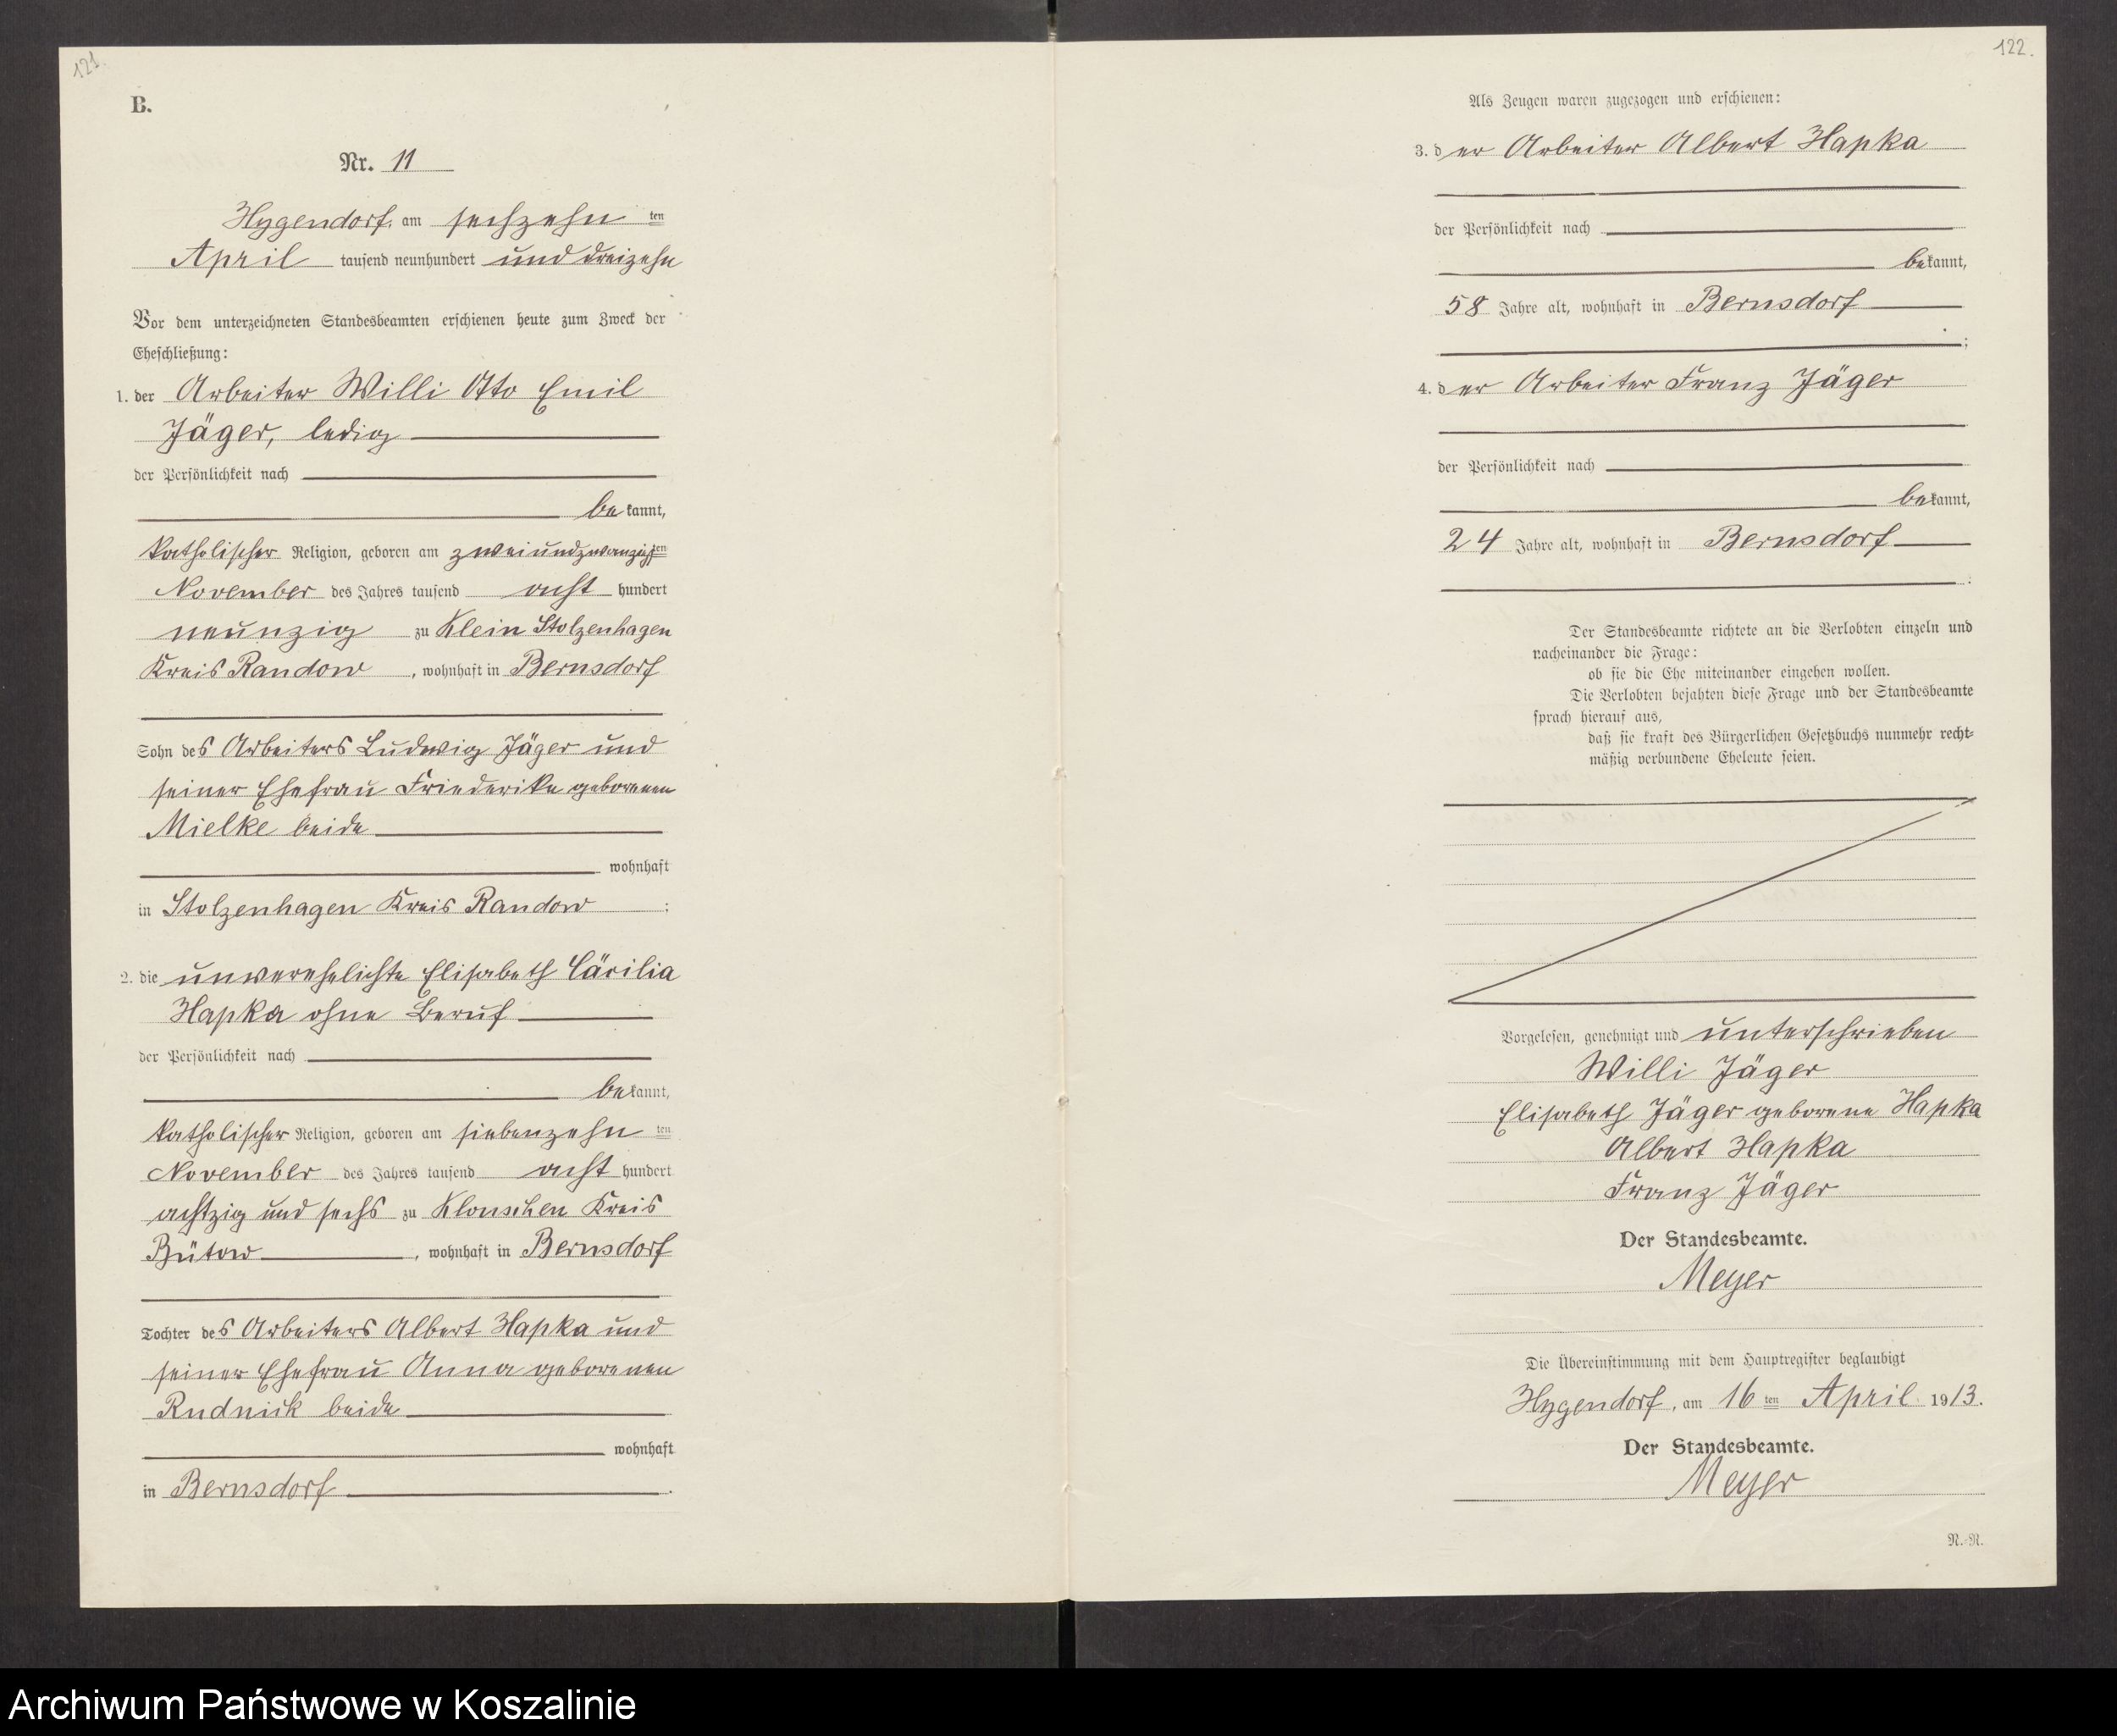 121.
B.
Nr. 11
Hygendorf, am sechzehn ten
April tausend neunhundert und dreizehn
Vor dem unterzeichneten Standesbeamten erschienen heute zum Zweck der
Eheschließung:
1. der Arbeiter Willi Otto Emil
Jäger, ledig
der Persönlichkeit nach
bekannt,
katholischer Religion, geboren am zweiundzwanzigsten
November des Jahres tausend acht hundert
neunzig zu Klein Stolzenhagen
Kreis Randow, wohnhaft in Bernsdorf
Sohn des Arbeiters Ludwig Jäger und
seiner Ehefrau Friederike geborenen
Mielke beide
wohnhaft
in Stolzenhagen Kreis Randow ;
2. die unverehelichte Elisabeth Cäcilia
Hapka ohne Beruf
der Persönlichkeit nach
bekannt,
katholischer Religion, geboren am siebenzehn ten
November des Jahres tausend acht hundert
achtzig und sechs zu Klonschen Kreis
Bütow, wohnhaft in Bernsdorf
Tochter des Arbeiters Albert Hapka und
seiner Ehefrau Anna geborenen
Rudnick beide
wohnhaft
in Bernsdorf.
122.
Als Zeugen waren zugezogen und erschienen:
3. der Arbeiter Albert Hapka
der Persönlichkeit nach
bekannt,
58 Jahre alt, wohnhaft in Bernsdorf
;
4. der Arbeiter Franz Jäger
der Persönlichkeit nach
bekannt,
24 Jahre alt, wohnhaft in Bernsdorf
.
Der Standesbeamte richtete an die Verlobten einzeln und
nacheinander die Frage:
ob sie die Ehe miteinander eingehen wollen.
Die Verlobten bejahten diese Frage und der Standesbeamte
sprach hierauf aus,
daß sie kraft des Bürgerlichen Gesetzbuchs nunmehr recht-
mäßig verbundene Eheleute seien.
Vorgelesen, genehmigt und unterschrieben
Willi Jäger
Elisabeth Jäger geborene Hapka
Albert Hapka
Franz Jäger
Der Standesbeamte.
Meyer
Die Übereinstimmung mit dem Hauptregister beglaubigt
Hygendorf, am 16 ten April 1913.
Der Standesbeamte.
Meyer
N.-N.
Archiwum Państwowe w Koszalinie